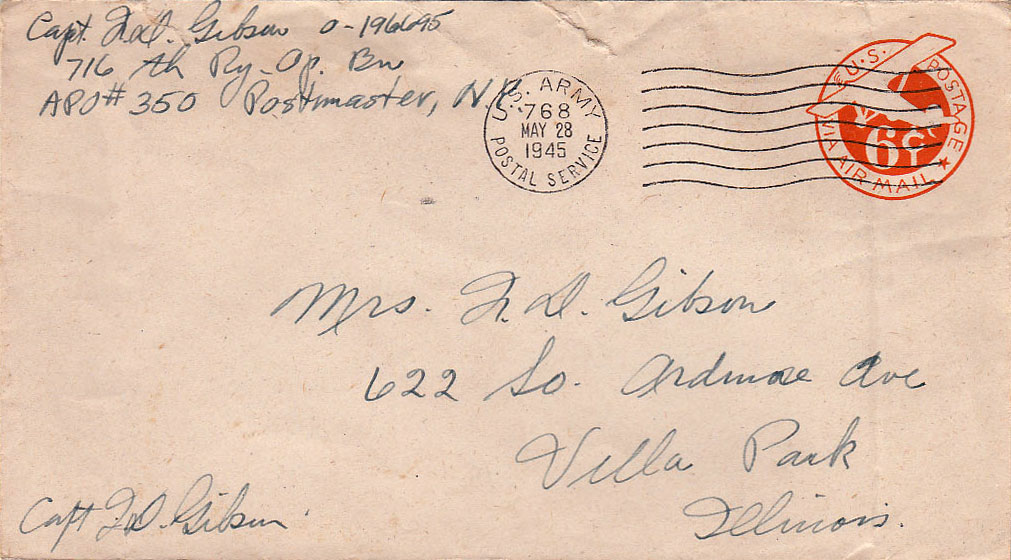 Capt. F.D. Gibson O-196695
716 th Ry. Op. Bn
APO# 350 Postmaster, N.Y.
U.S. ARMY
768
MAY 28
1945
POSTAL SERVICE
U.S. POSTAGE
6¢
VIA AIR MAIL
Mrs. F. D. Gibson
622 So. Ardmore Ave
Villa Park
Illinois.
Capt F.D. Gibson.